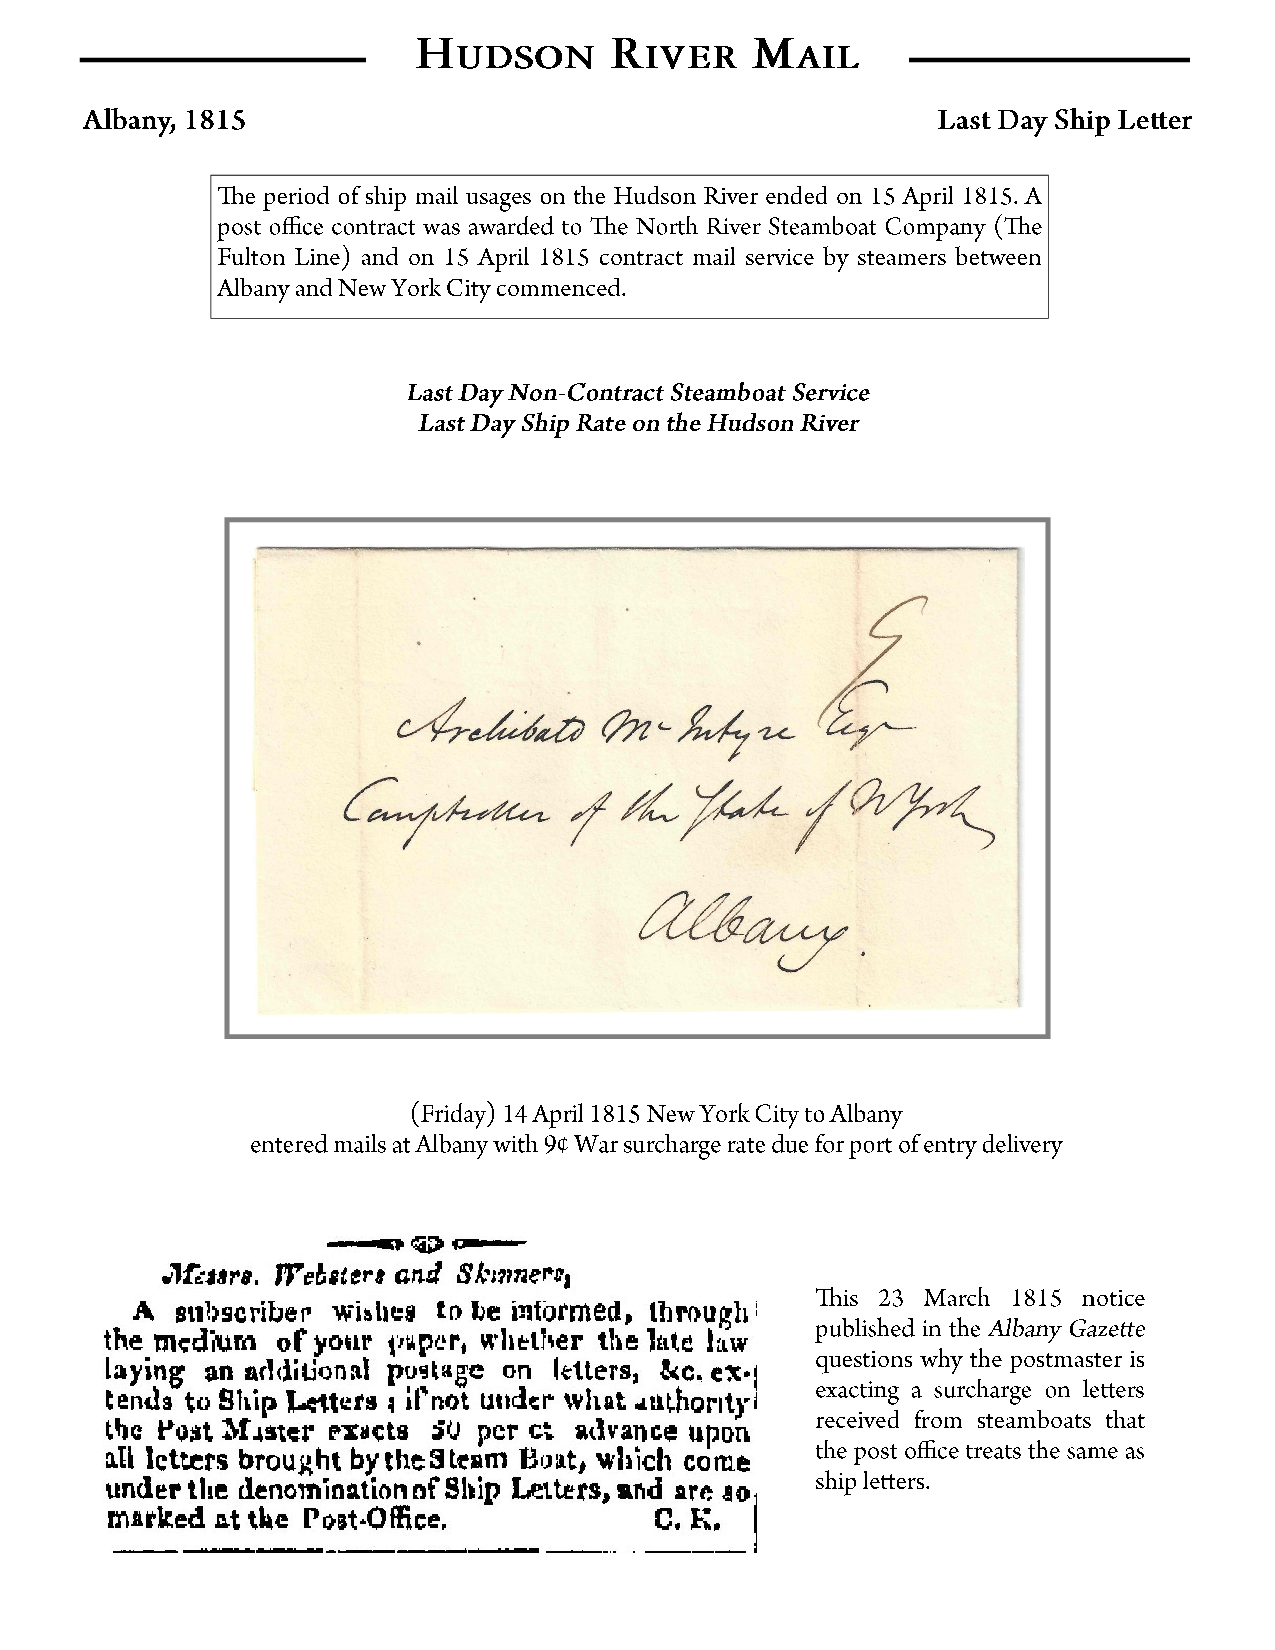 HUDSON RIVER MAIL
Albany, 1815
Last Day Ship Letter
The period of ship mail usages on the Hudson River ended on 15 April 1815. A
post office contract was awarded to The North River Steamboat Company (The
Fulton Line) and on 15 April 1815 contract mail service by steamers between
Albany and New York City commenced.
Last Day Non-Contract Steamboat Service
Last Day Ship Rate on the Hudson River
9
Archibald Mc Intyre Esqr
Comptroller of the State of N York
Albany.
(Friday) 14 April 1815 New York City to Albany
entered mails at Albany with 9¢ War surcharge rate due for port of entry delivery
Messrs. Websters and Skinners,
A subscriber wishes to be informed, through
the medium of your paper, whether the late law
laying an additional postage on letters, &c. ex-
tends to Ship Letters ; if not under what authority
the Post Master exacts 50 per ct advance upon
all letters brought by the Steam Boat, which come
under the denomination of Ship Letters, and are so
marked at the Post-Office. C. K.
This 23 March 1815 notice
published in the Albany Gazette
questions why the postmaster is
exacting a surcharge on letters
received from steamboats that
the post office treats the same as
ship letters.